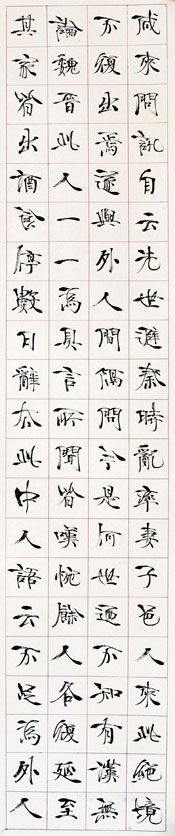 咸來問訊自云先世避秦時亂率妻子邑人來此絕境
不復出焉遂與外人間隔問今是何世迺不知有漢無
論魏晉此人一一為具言所聞皆嘆惋餘人各復延至
其家皆出酒食停數日辭去此中人語云不足為外人